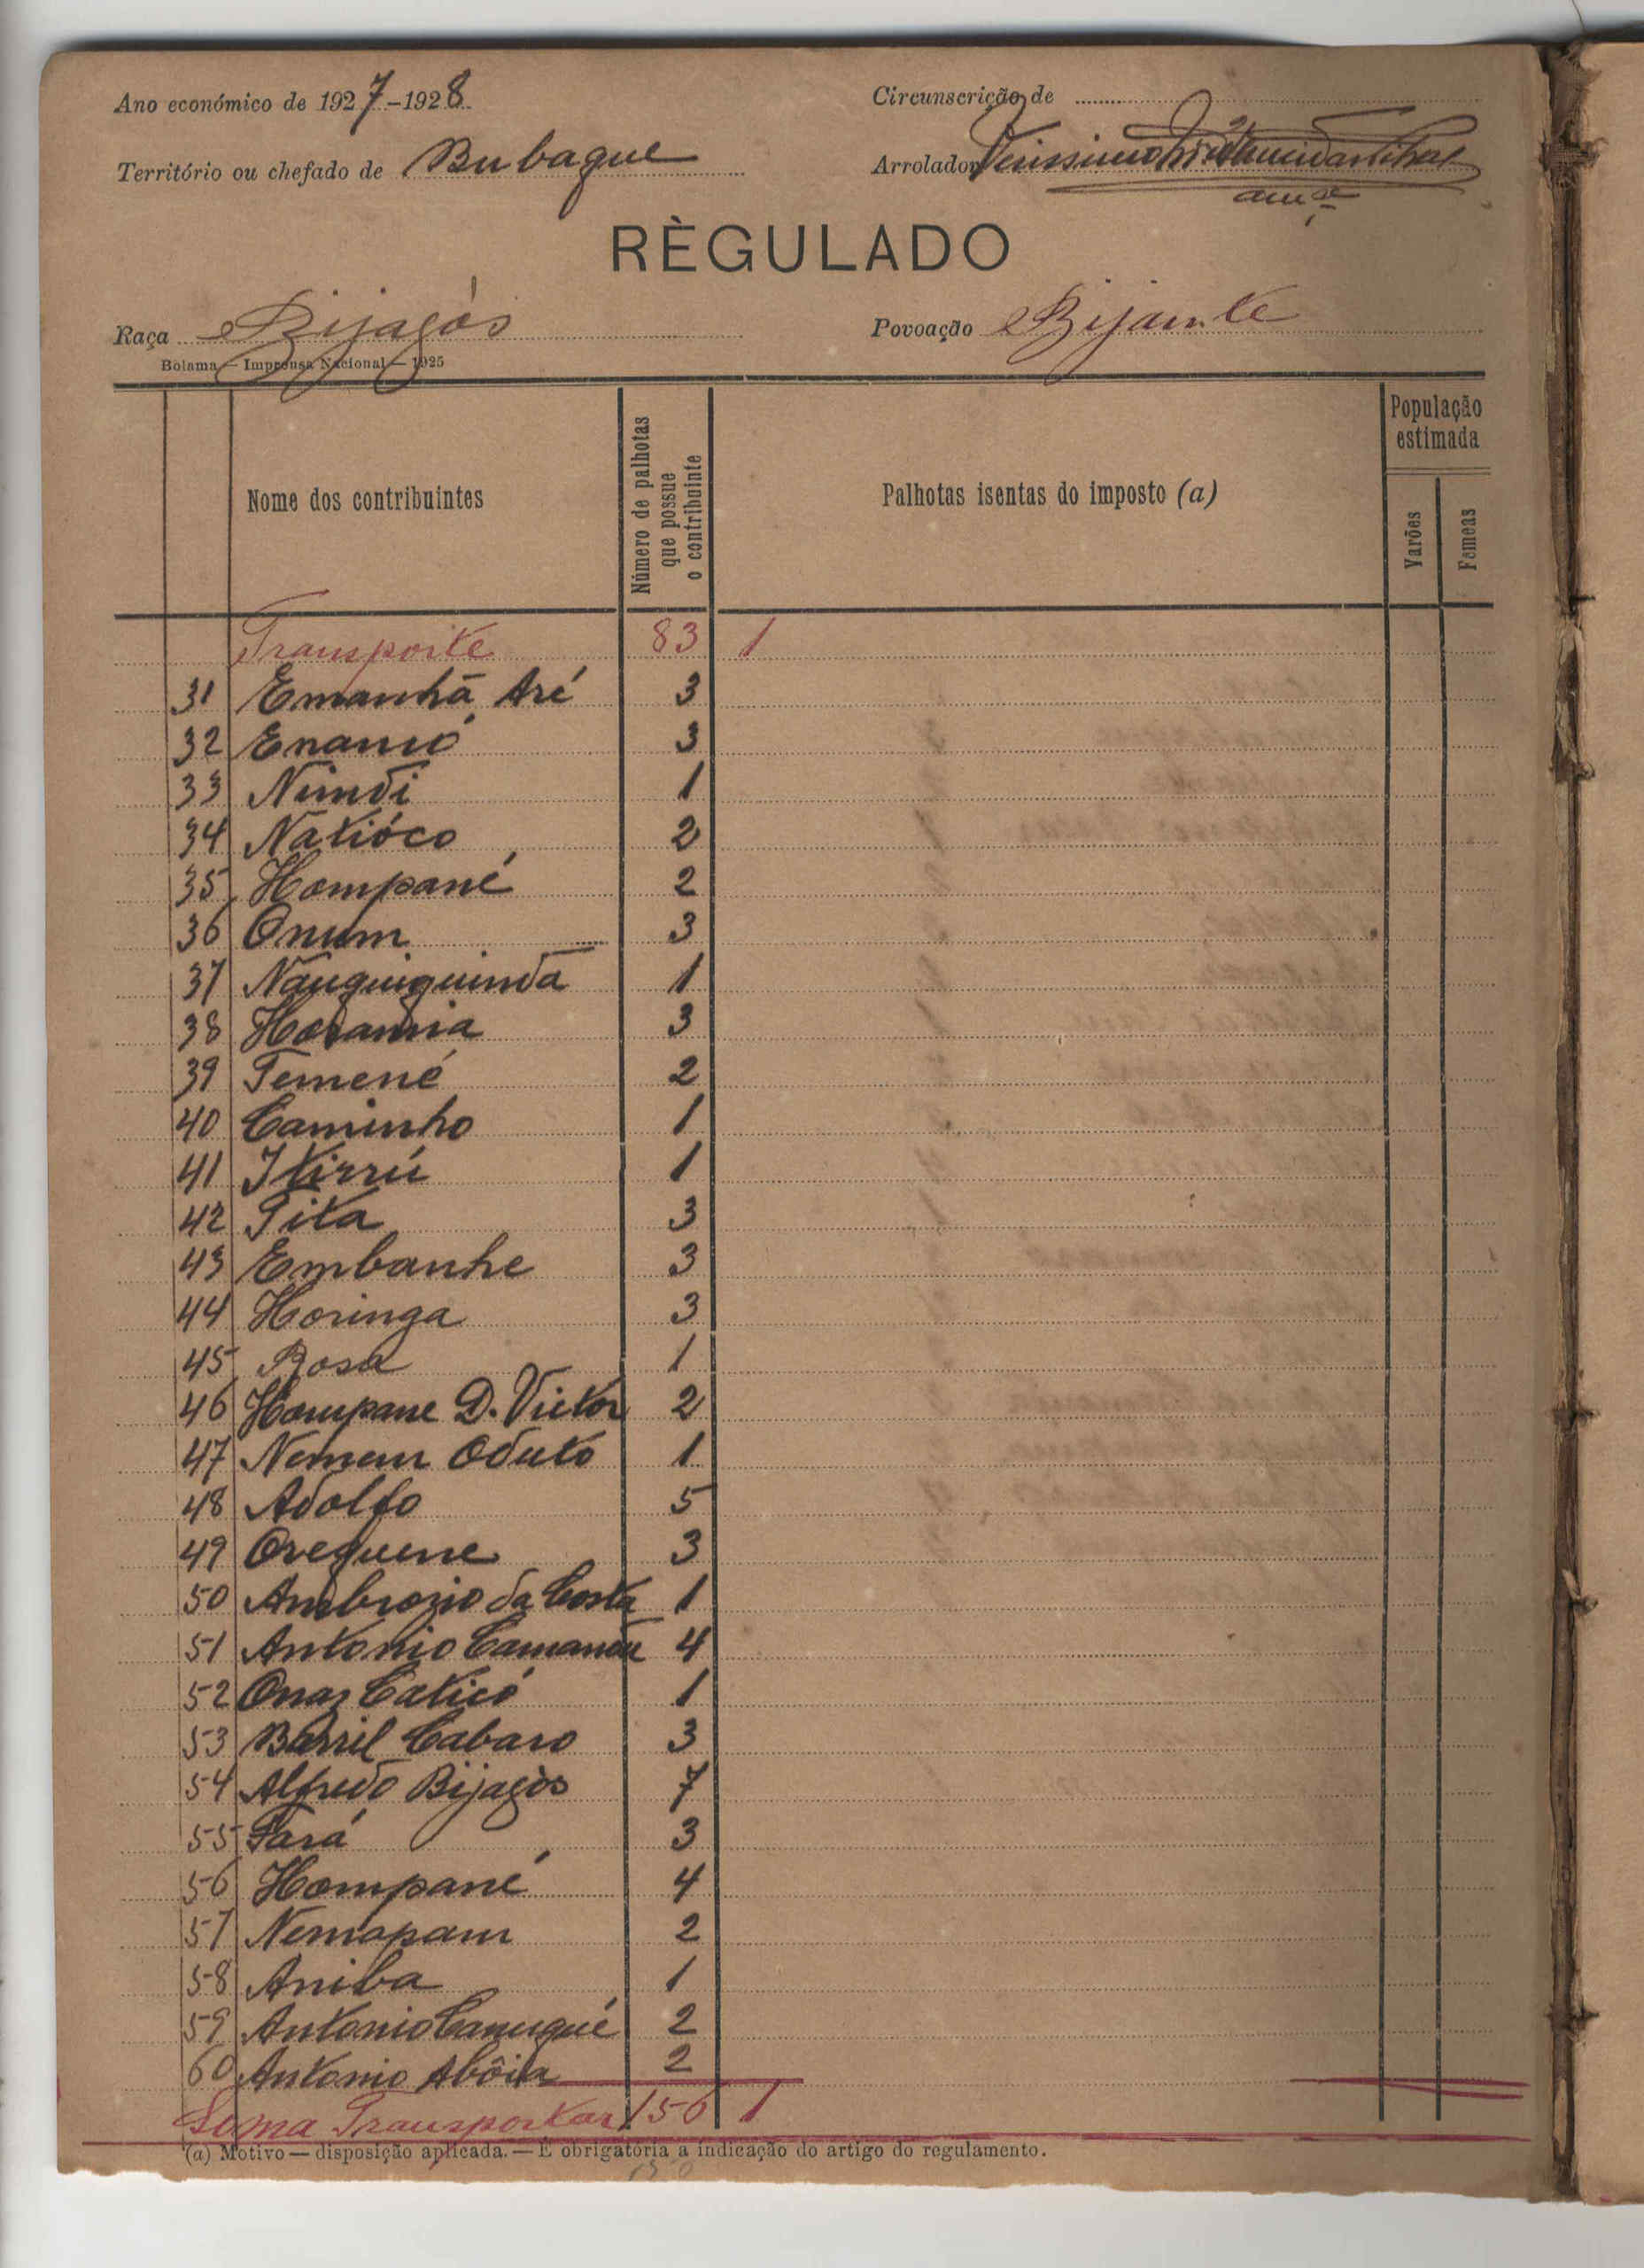 Ano económico de 1927-1928
Circunscrição de
Território ou chefado de Bubaque
Arrolador Verissimo
RÈGULADO
Raça Bijagós
Povoação Bijante
Bolama — Imprensa Nacional — 1925
Nome dos contribuintes
Número de palhotas que possue o contribuinte
Palhotas isentas do imposto (a)
População estimada
Varões
Femeas
Transporte 83 1
31 Emanhã Aré 3
32 Enamó 3
33 Nimdi 1
34 Natióco 2
35 Hompané 2
36 Onum 3
37 Nauguiguinda 1
38 3
39 Temené 2
40 Caminho 1
41 Itirrú 1
42 Tita 3
43 Embanhe 3
44 Horinga 3
45 Rosa 1
46 Hompane D. Victor 2
47 Nemam Oduto 1
48 Adolfo 5
49 Oreguene 3
50 Ambrozio da Costa 1
51 Antonio 4
52 Caticó 1
53 Barril Cabaro 3
54 Alfredo Bijagòs 7
55 Pará 3
56 Hompané 4
57 Nemopam 2
58 Aniba 1
59 Antonio Canugué 2
60 Antonio Abôia 2
Soma Transportar 156 1
(a) Motivo — disposição aplicada. — É obrigatória a indicação do artigo do regulamento.